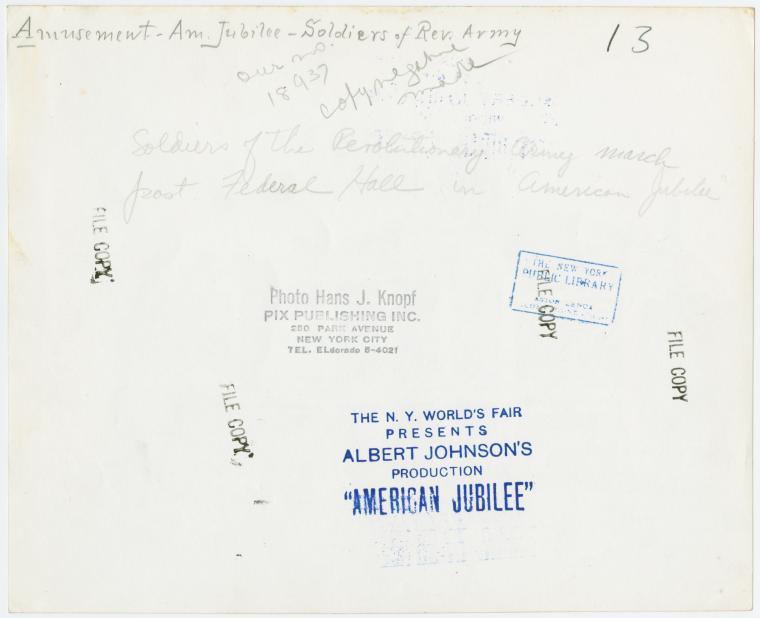 Amusement - Am. Jubilee - Soldiers of Rev. Army
13
our no.
18937
copy negative
made
Soldiers of the Revolutionary Army march
past Federal Hall in "American Jubilee"
FILE COPY
THE NEW YORK
PUBLIC LIBRARY
ASTOR LENOX
FILE COPY
Photo Hans J. Knopf
PIX PUBLISHING INC.
250 PARK AVENUE
NEW YORK CITY
TEL. ELdorado 5-4021
FILE COPY
FILE COPY
THE N. Y. WORLD'S FAIR
PRESENTS
ALBERT JOHNSON'S
PRODUCTION
"AMERICAN JUBILEE"